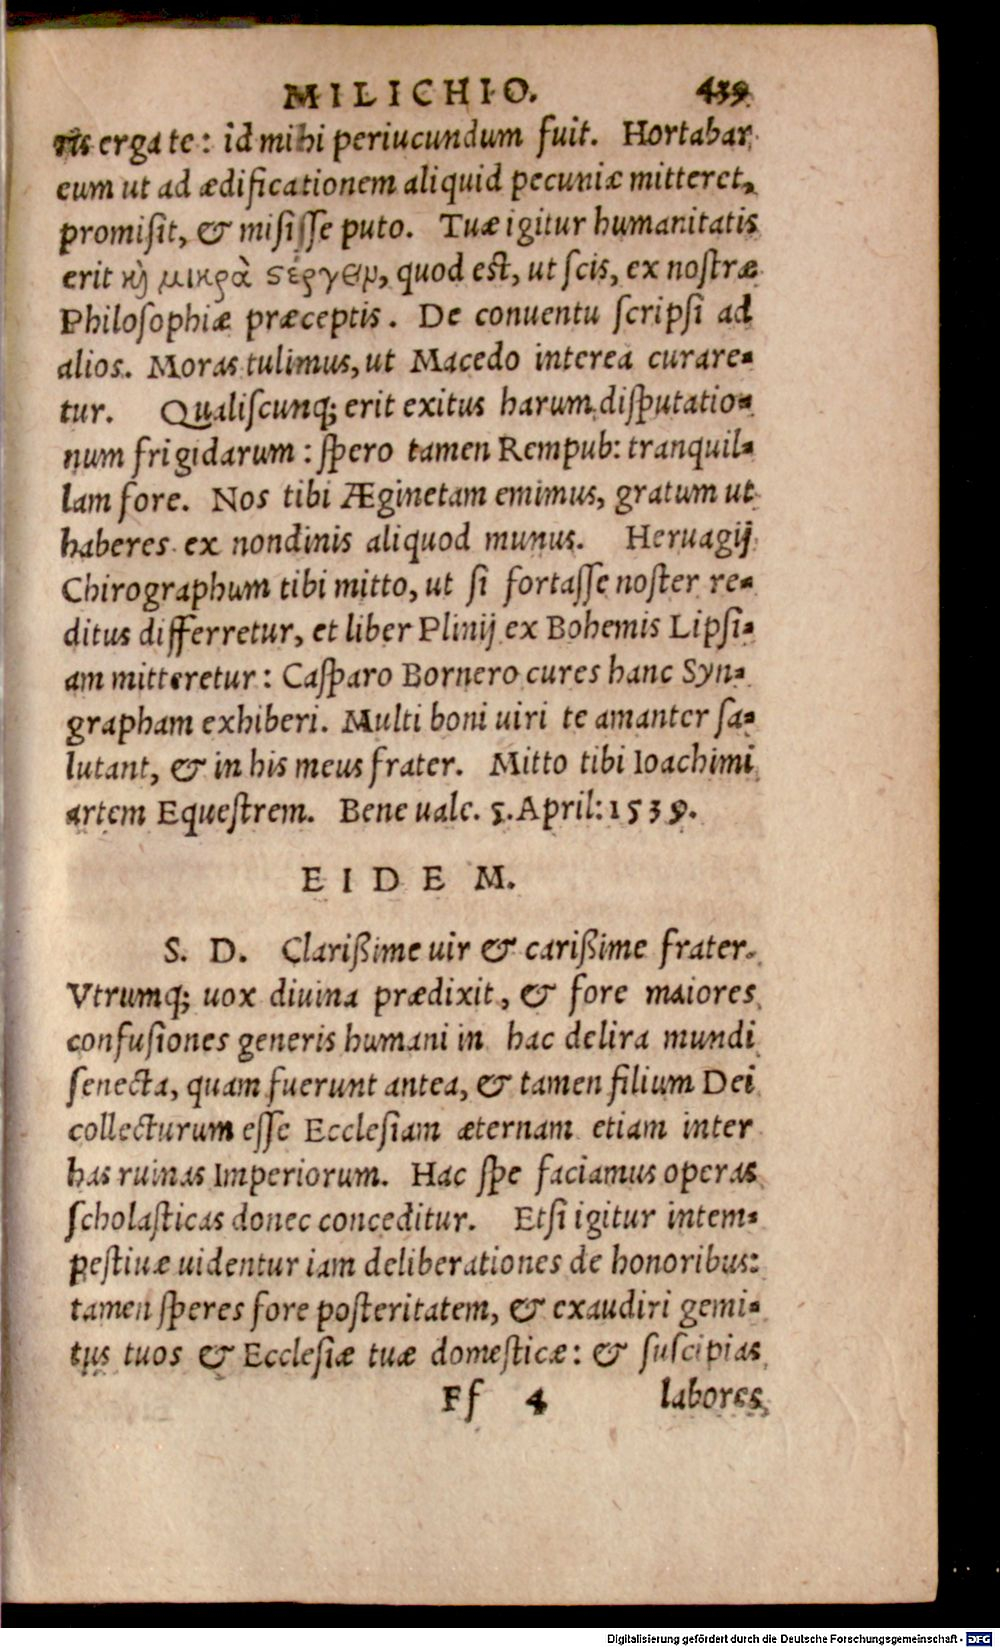 MILICHIO. 439
ris erga te: id mihi periucundum fuit. Hortabar
eum ut ad ædificationem aliquid pecuniæ mitteret,
promiſit, & miſiſſe puto. Tuæ igitur humanitatis
erit καὶ μικρὰ στέργειν, quod est, ut ſcis, ex noſtræ
Philoſophiæ præceptis. De conuentu ſcripſi ad
alios. Moras tulimus, ut Macedo interea curare-
tur. Qualiſcunq; erit exitus harum diſputatio-
num frigidarum: ſpero tamen Rempub: tranquil-
lam fore. Nos tibi Æginetam emimus, gratum ut
haberes ex nondinis aliquod munus. Heruagij
Chirographum tibi mitto, ut ſi fortaſſe noſter re-
ditus differretur, et liber Plinij ex Bohemis Lipſi-
am mitteretur: Caſparo Bornero cures hanc Syn-
grapham exhiberi. Multi boni uiri te amanter ſa-
lutant, & in his meus frater. Mitto tibi Ioachimi
artem Equeſtrem. Bene uale. 5. April: 1539.
EIDEM.
S. D. Clarißime uir & carißime frater.
Vtrumq; uox diuina prædixit, & fore maiores
confuſiones generis humani in hac delira mundi
ſenecta, quam fuerunt antea, & tamen filium Dei
collecturum eſſe Eccleſiam æternam etiam inter
has ruinas Imperiorum. Hac ſpe faciamus operas
ſcholaſticas donec conceditur. Etſi igitur intem-
peſtiuæ uidentur iam deliberationes de honoribus:
tamen ſperes fore poſteritatem, & exaudiri gemi-
tus tuos & Eccleſiæ tuæ domeſticæ: & ſuſcipias
Ff 4 labores
Digitalisierung gefördert durch die Deutsche Forschungsgemeinschaft - DFG